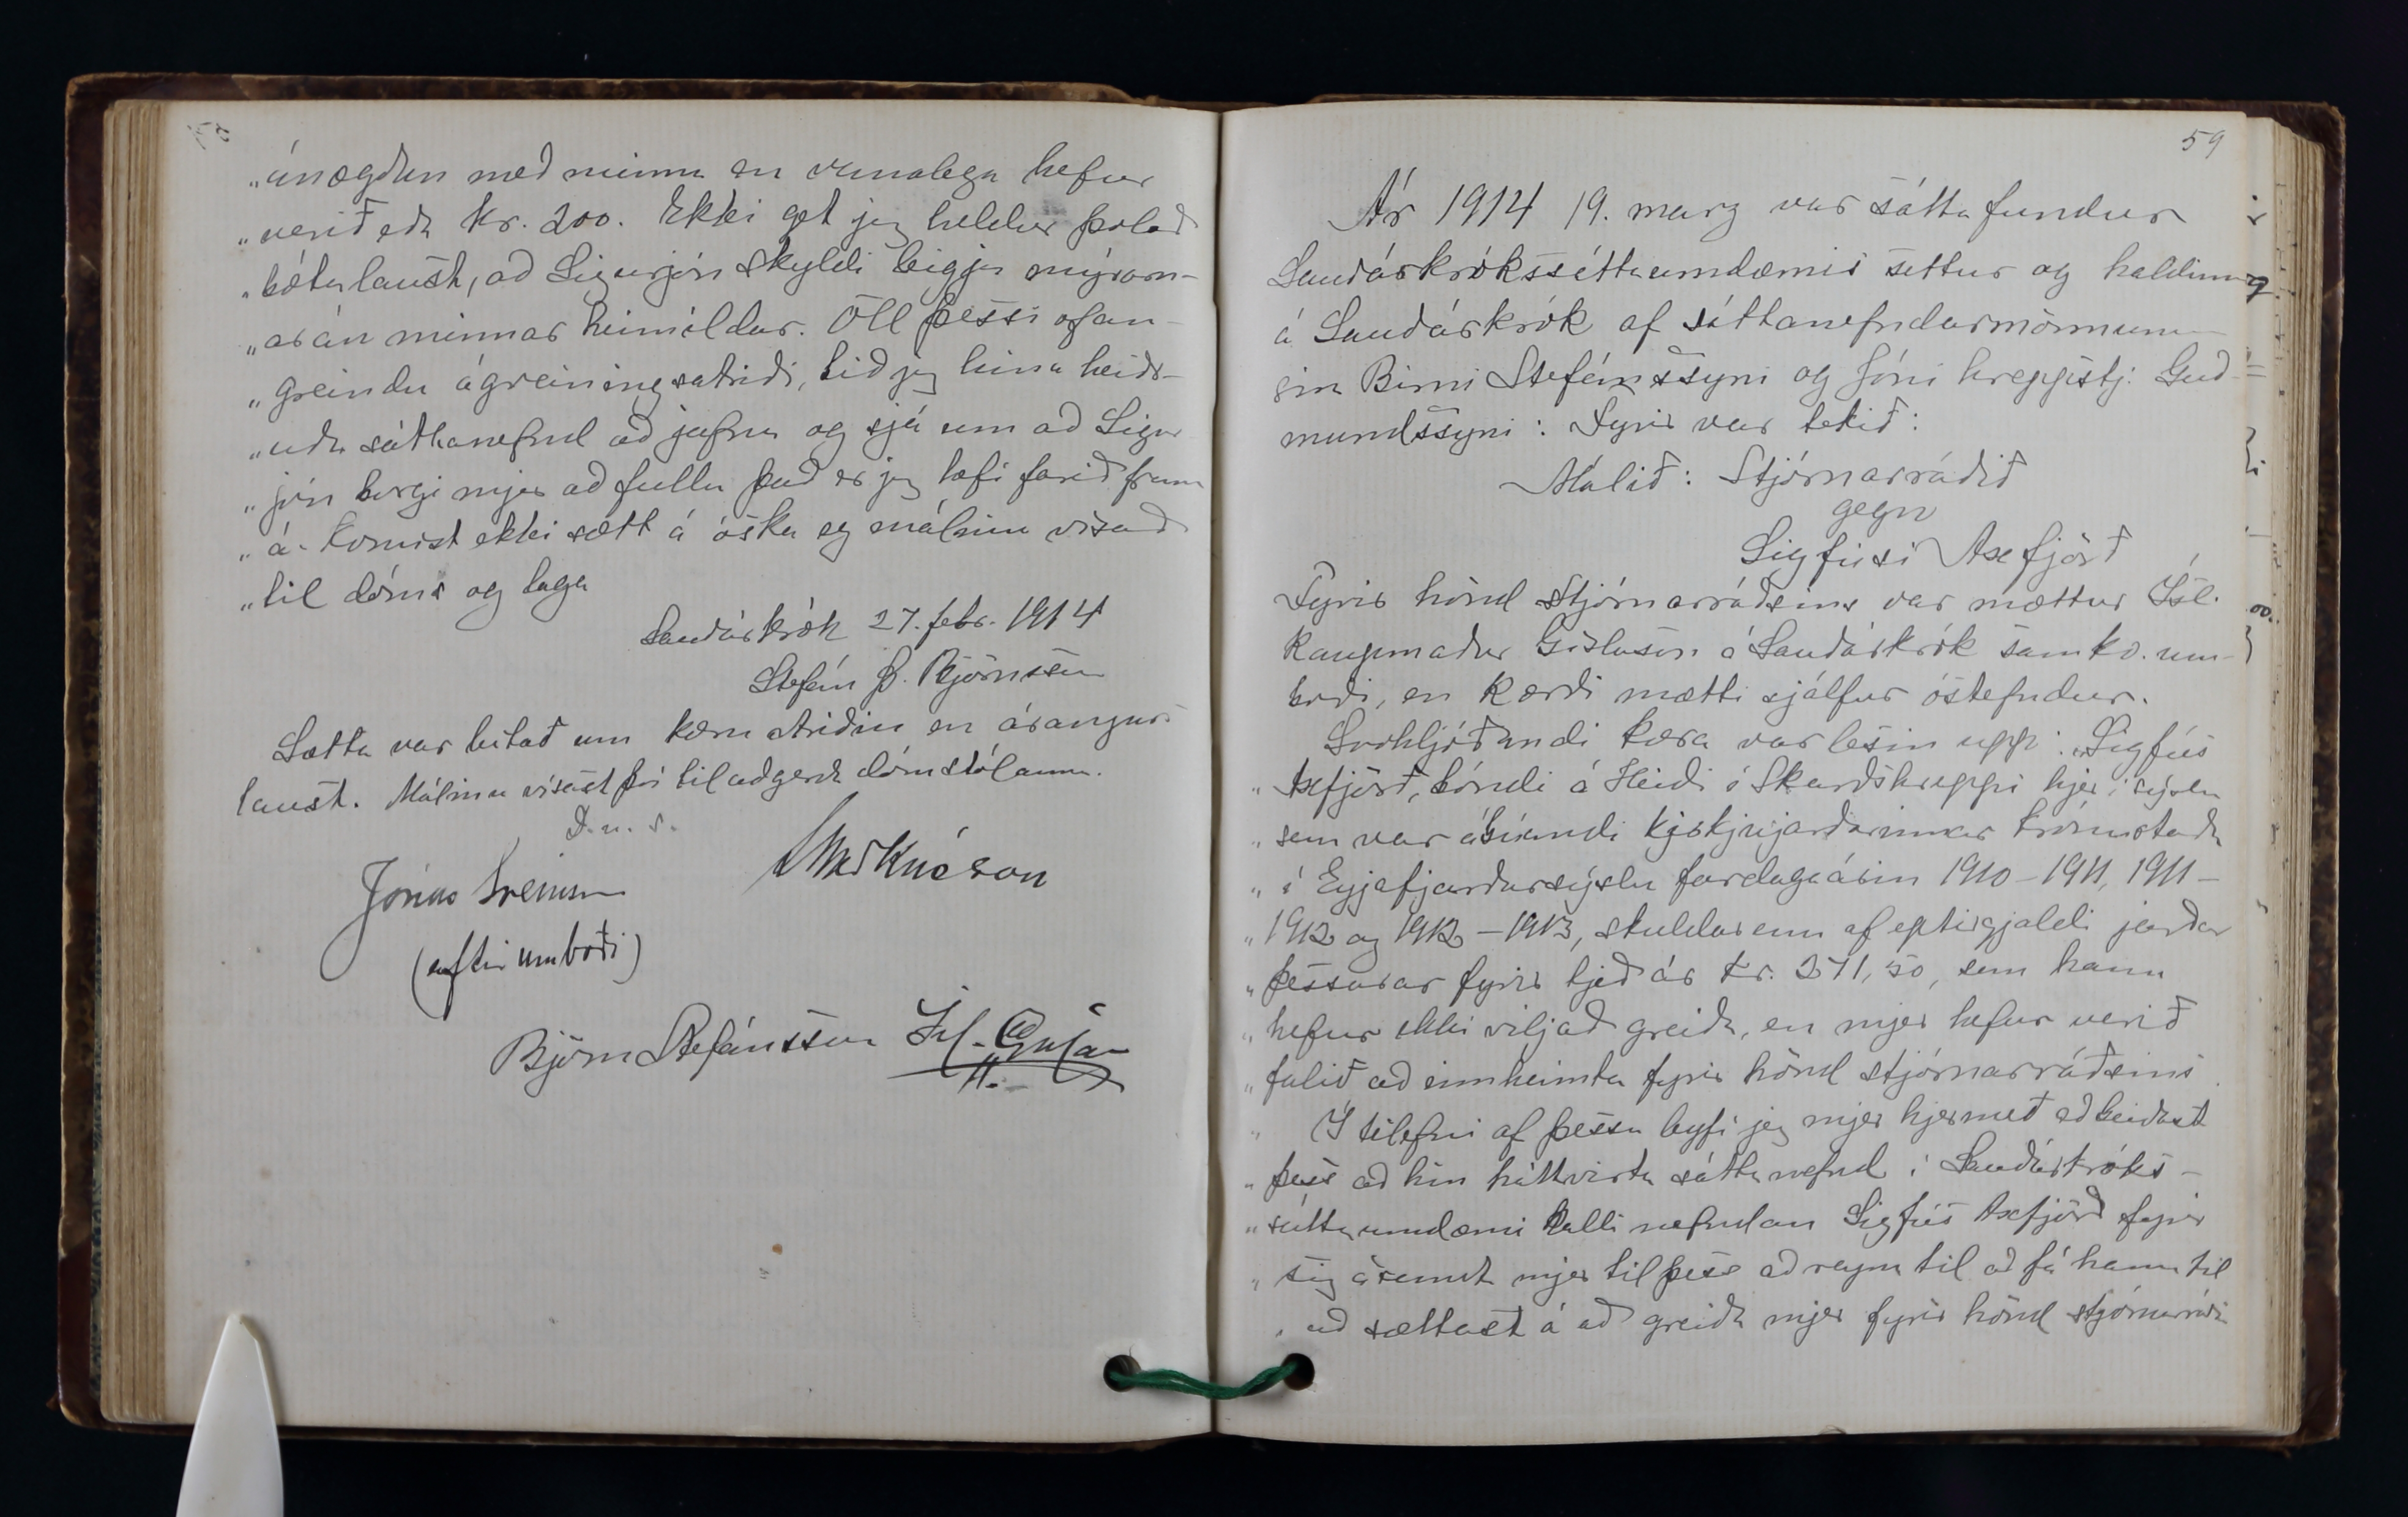 „ánægður með minna en venulega hefur
„verið eða kr. 200. Ekki get jeg heldur þolað
„bótalaust, að Sigurjón skyldi byggja mýrarn-
„ar án minnar heimildar. Öll þessi ofan-
„greindu ágreiningsatriði, bið jeg hina heiðr-
„uðu sáttanefnd að jafna og sjá um að Sigur
„jón borgi mjer að fullu það er jeg hefi farið fram
„á. Komist ekki sætt á óska eg málinu vísað
„til dóms og laga
Sauðárkrók 27. febr. 1914
Stefán Þ. Björnsson
Sætta var leitað um kæru atriðin en árangurs
laust. Málinu vísast því til aðgerða dómstólanna.
D. u. s.
Jónas Sveinsson
(eftir umboði)
Björn Stefánsson
59
Ár 1914 19. marz var sáttafundur
Sauðárkrókssáttaumdæmis settur og haldinn
á Sauðárkrók af sáttanefndarmönnunum
Birni Stefánssyni og Jóni hreppstj. Guð-
mundssyni: Fyrir var tekið:
Málið: Stjórnarráðið
gegn
Sigfúsi Axfjörð
Fyrir hönd Stjórnarráðsins var mættur Ísl.
kaupmaður Gíslason á Sauðárkrók samkv. um-
boði, en kærði mætti sjálfur óstefndur.
Svohljóðandi kæra var lesin upp: „Sigfús
„Axfjörð, bóndi á Heiði í Skarðshreppi hjer í sýslu
„sem var ábúandi kirkjujarðarinnar Krónustaða
„í Eyjafjarðarsýslu fardagaárin 1910-1911, 1911-
„1912 og 1912-1913, skuldar enn af eptirgjaldi jarðar
„þessarar fyrir tjeð ár kr. 271,50, sem hann
„hefur ekki viljað greiða, en mjer hefur verið
„falið að innheimta fyrir hönd stjórnarráðsins
„Í tilefni af þessu leyfi jeg mjer hjermeð að beiðast
„þess að hin háttvirta sáttanefnd í Sauðárkróks-
„sáttaumdæmi kalli nefndan Sigfús Axfjörð fyrir
„sig ásamt mjer til þess að reyna til að fá hann til
„að sættast á að greiða mjer fyrir hönd stjórnarráðs